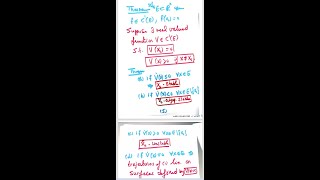 Theorem
f ∈ C'(E), f(x₀) = 0
Suppose ∃ real valued
function V ∈ C'(E)
s.t. V(x₀) = 0
V(x) > 0 if x ≠ x₀
Then
(a) if V̇(x) ≤ 0 ∀ x ∈ E ⇒
x₀ - stable
(b) if V̇(x) < 0 ∀ x ∈ E\{x₀}
x₀ - asy. stable
(c) if V̇(x) > 0 ∀ x ∈ E\{x₀}
x₀ - unstable
(d) if V̇(x) = 0 ∀ x ∈ E ⇒
trajectories of (1) lie on
surfaces defined by